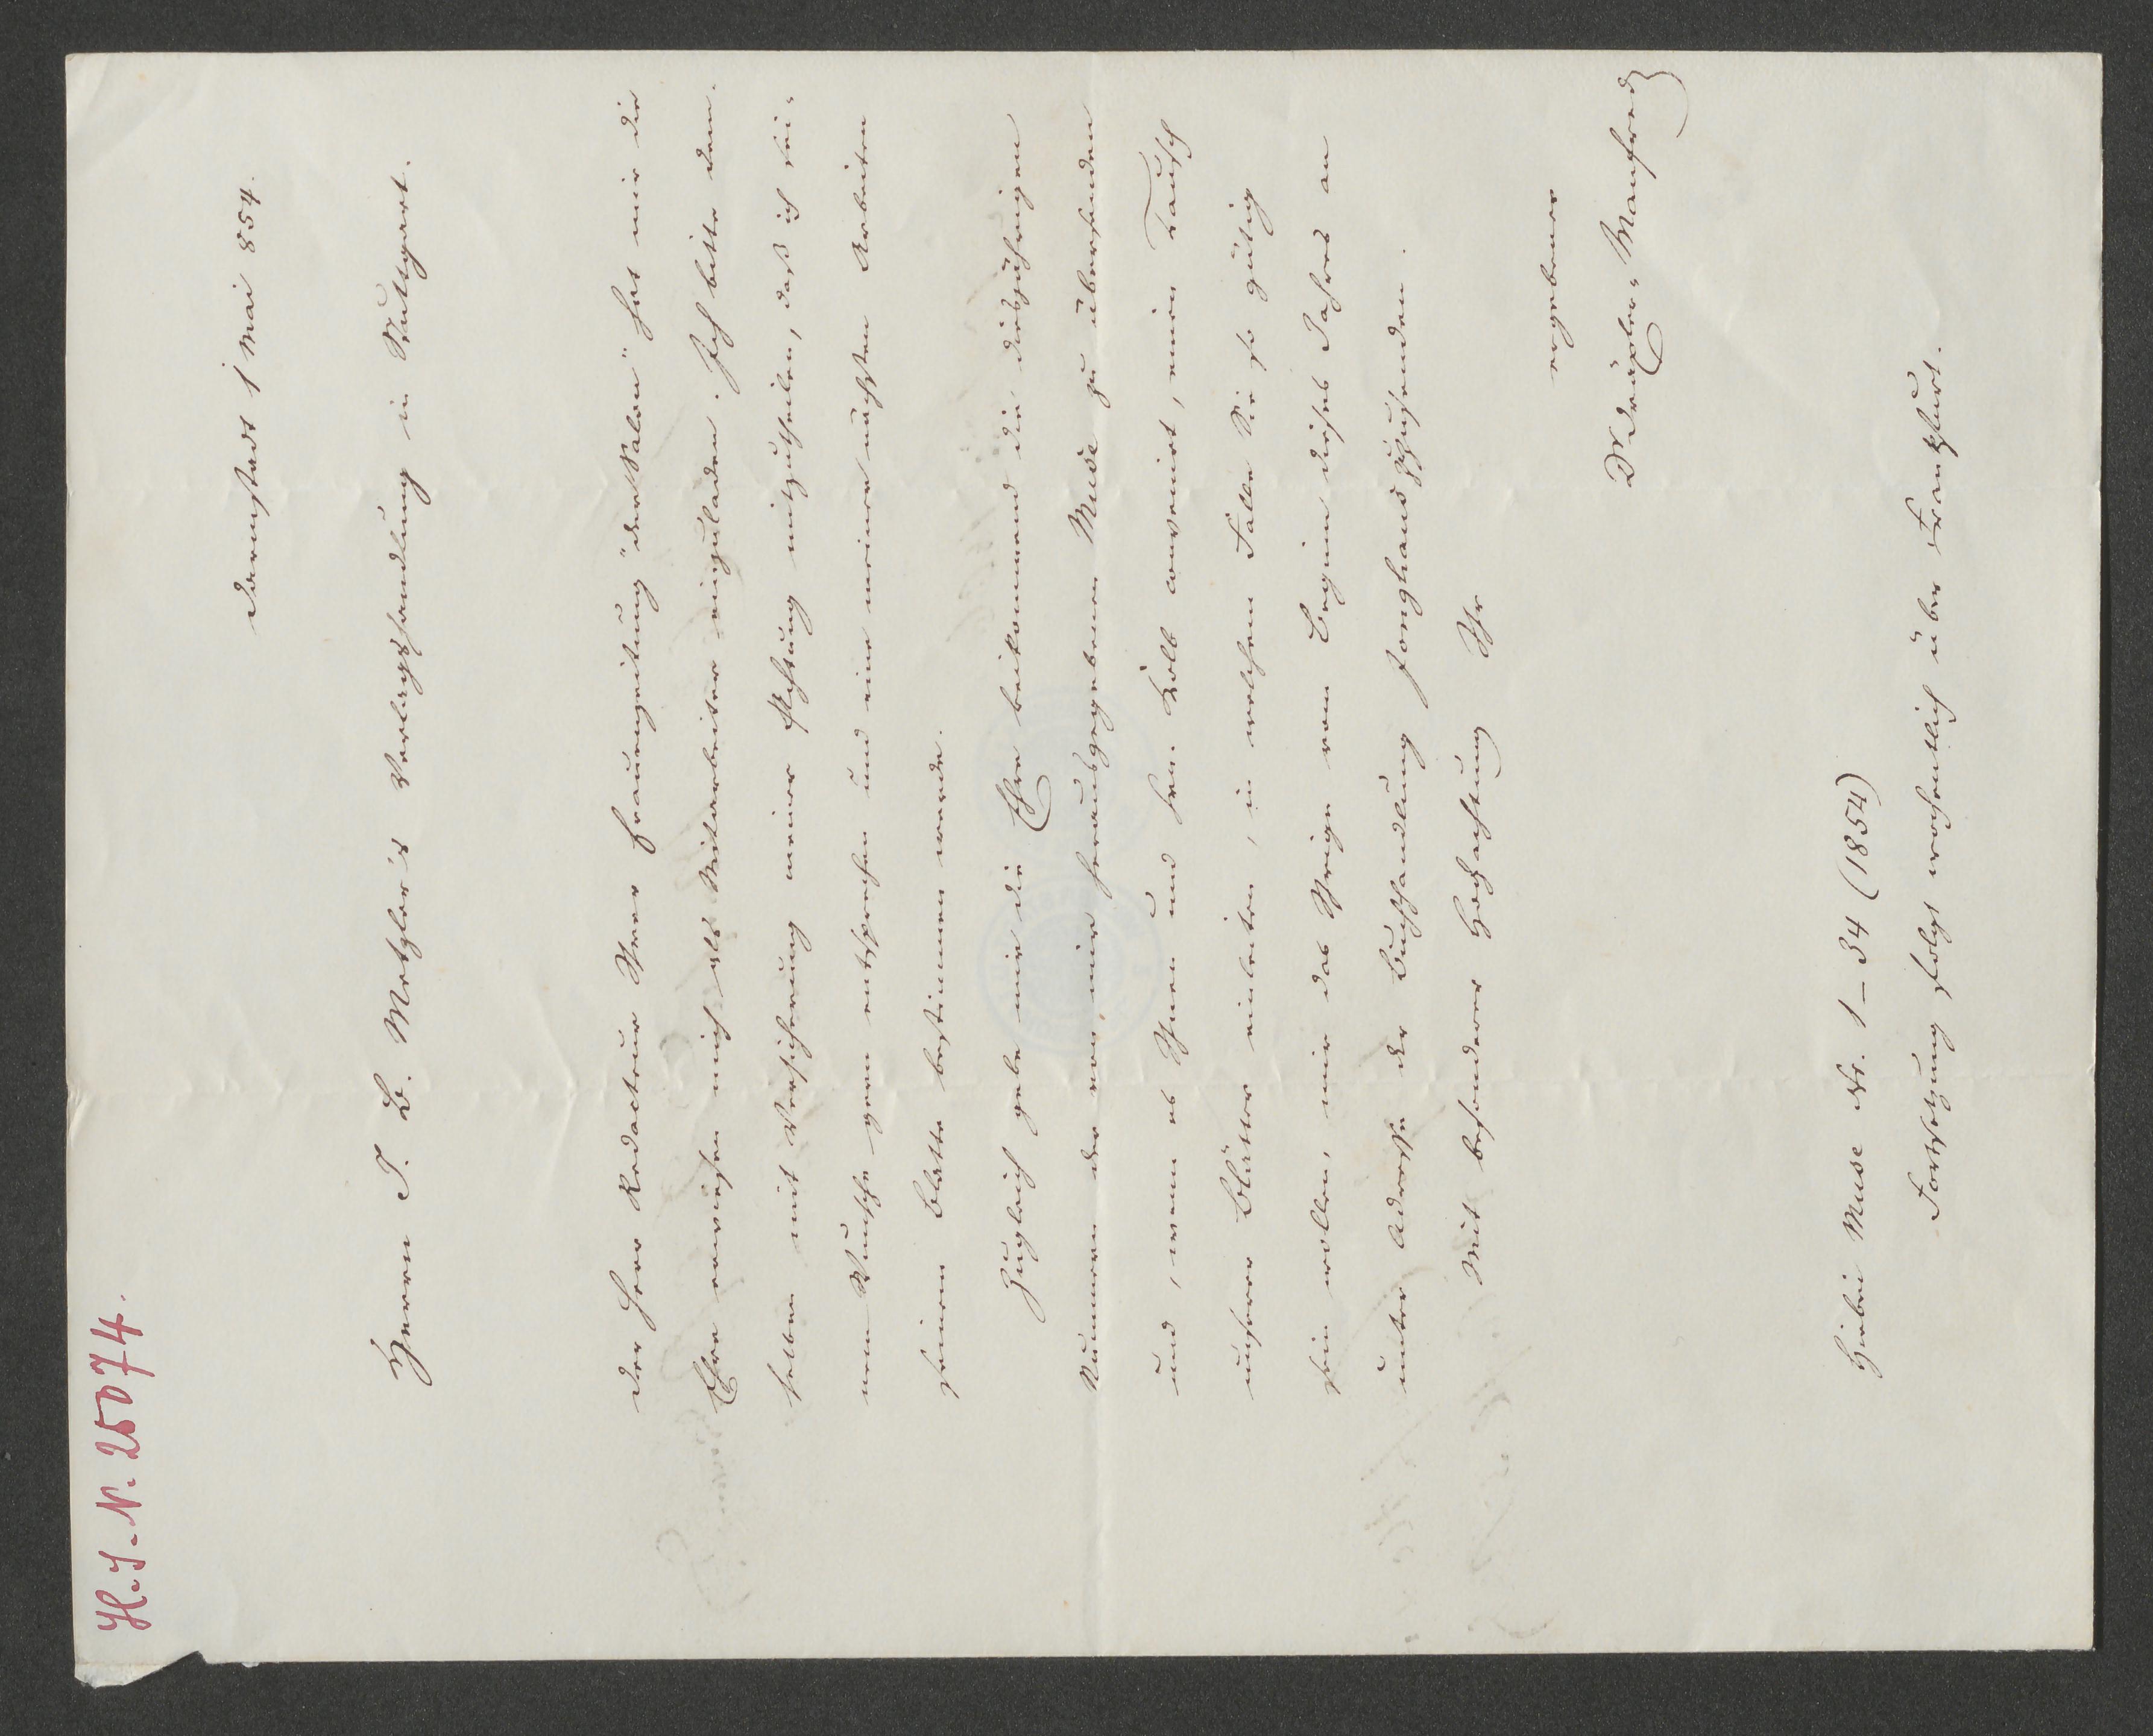 H.I.N. 25074.
Darmstadt 1 Mai 854.
Herrn J. B. Metzler's Verlagshandlung in Stuttgart.
Der Herr Redacteur Ihrer Frauenzeitung "der Salon" hat mir die
Ehre erwiesen mich als Mitarbeiter einzuladen. Ich bitte dem-
selben mit Versicherung meiner Achtung mitzutheilen, daß ich sei-
nem Wunsche gern entsprechen und eine meiner nächsten Arbeiten
seinem Blatte bestimmen werde.
Zugleich gebe mir die Ehre beikommend die diesjährigen
Nummern der von mir herausgegebenen Muse zu übersenden
und, wenn es Ihnen und Hrn. Kolb convenirt, einen Tausch
unserer Blätter einleiten, in welchem Falle Sie so gütig
sein wollen, mir das Ihrige vom Beginn dieses Jahres an
unter Adresse der Buchhandlung Jonghaus zuzusenden.
Mit besonderer Hochachtung Ihr
ergebener
Dr Dräxler-Manfred
Hiebei Muse Nr. 1–34 (1854)
Fortsetzung folgt wochentlich über Frankfurt.